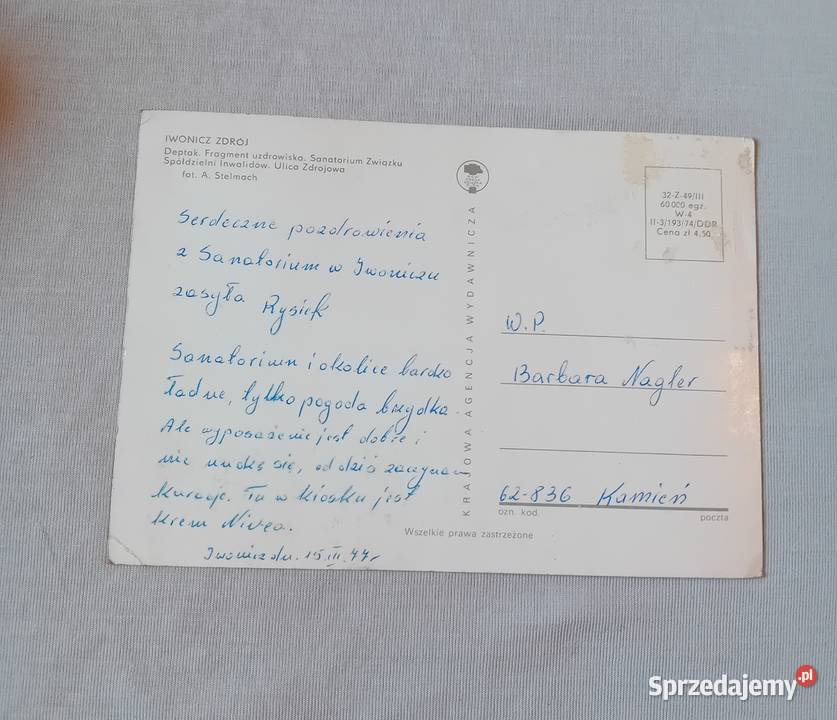 IWONICZ ZDRÓJ
Deptak. Fragment uzdrowiska. Sanatorium Związku
Spółdzielni Inwalidów. Ulica Zdrojowa
fot. A. Stelmach
Serdeczne pozdrowienia
z Sanatorium w Iwoniczu
zasyła Rysiek
Sanatorium i okolice bardzo
ładne, tylko pogoda brzydka.
Ale wyposażenie jest dobre i
nie nudzę się, od dziś zaczynam
kurację. Tu w kiosku jest
krem Nivea.
Iwonicz dn. 15.III.77r
KRAJOWA AGENCJA WYDAWNICZA
32-Z-49/III
60 000 egz.
W-4
II-3/193/74/DDR
Cena zł 4.50
W.P.
Barbara Nagler
62-836 Kamień
ozn. kod
poczta
Wszelkie prawa zastrzeżone
Sprzedajemy.pl